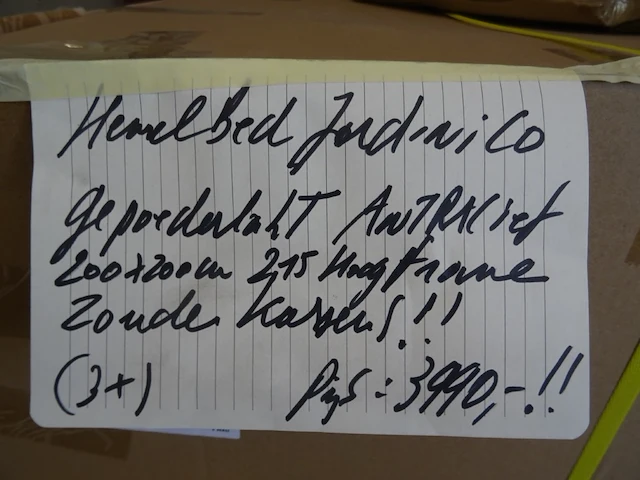 Hemelbed Jardinico
gepoederlakt Antraciet
200x200cm 2,15 Hoog Frame
zonder kussens!!
(3+) Prijs: 3990,-!!